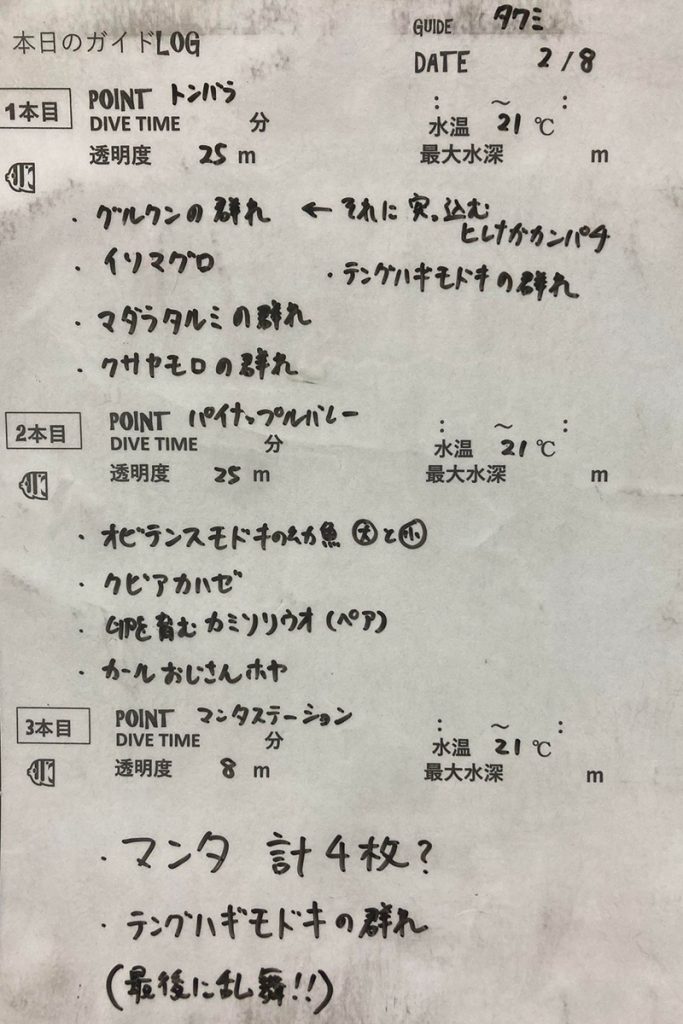 本日のガイドLOG
GUIDE タクミ
DATE 2/8
1本目 POINT トンバラ : 〜 :
DIVE TIME 分 水温 21 ℃
透明度 25 m 最大水深 m
・グルクンの群れ ← それに突っ込む
ヒレナガカンパチ
・イソマグロ ・テングハギモドキの群れ
・マダラタルミの群れ
・クサヤモロの群れ
2本目 POINT パイナップルバレー : 〜 :
DIVE TIME 分 水温 21 ℃
透明度 25 m 最大水深 m
・オビテンスモドキの幼魚 大と小
・クビアカハゼ
・卵を育むカミソリウオ(ペア)
・カールおじさんホヤ
3本目 POINT マンタステーション : 〜 :
DIVE TIME 分 水温 21 ℃
透明度 8 m 最大水深 m
・マンタ 計4枚?
・テングハギモドキの群れ
(最後に乱舞!!)